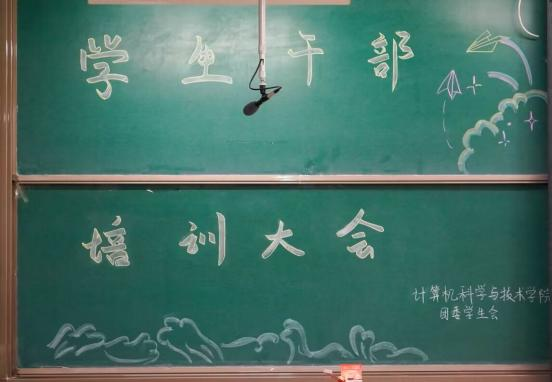 学生干部
培训大会
计算机科学与技术学院
团委学生会